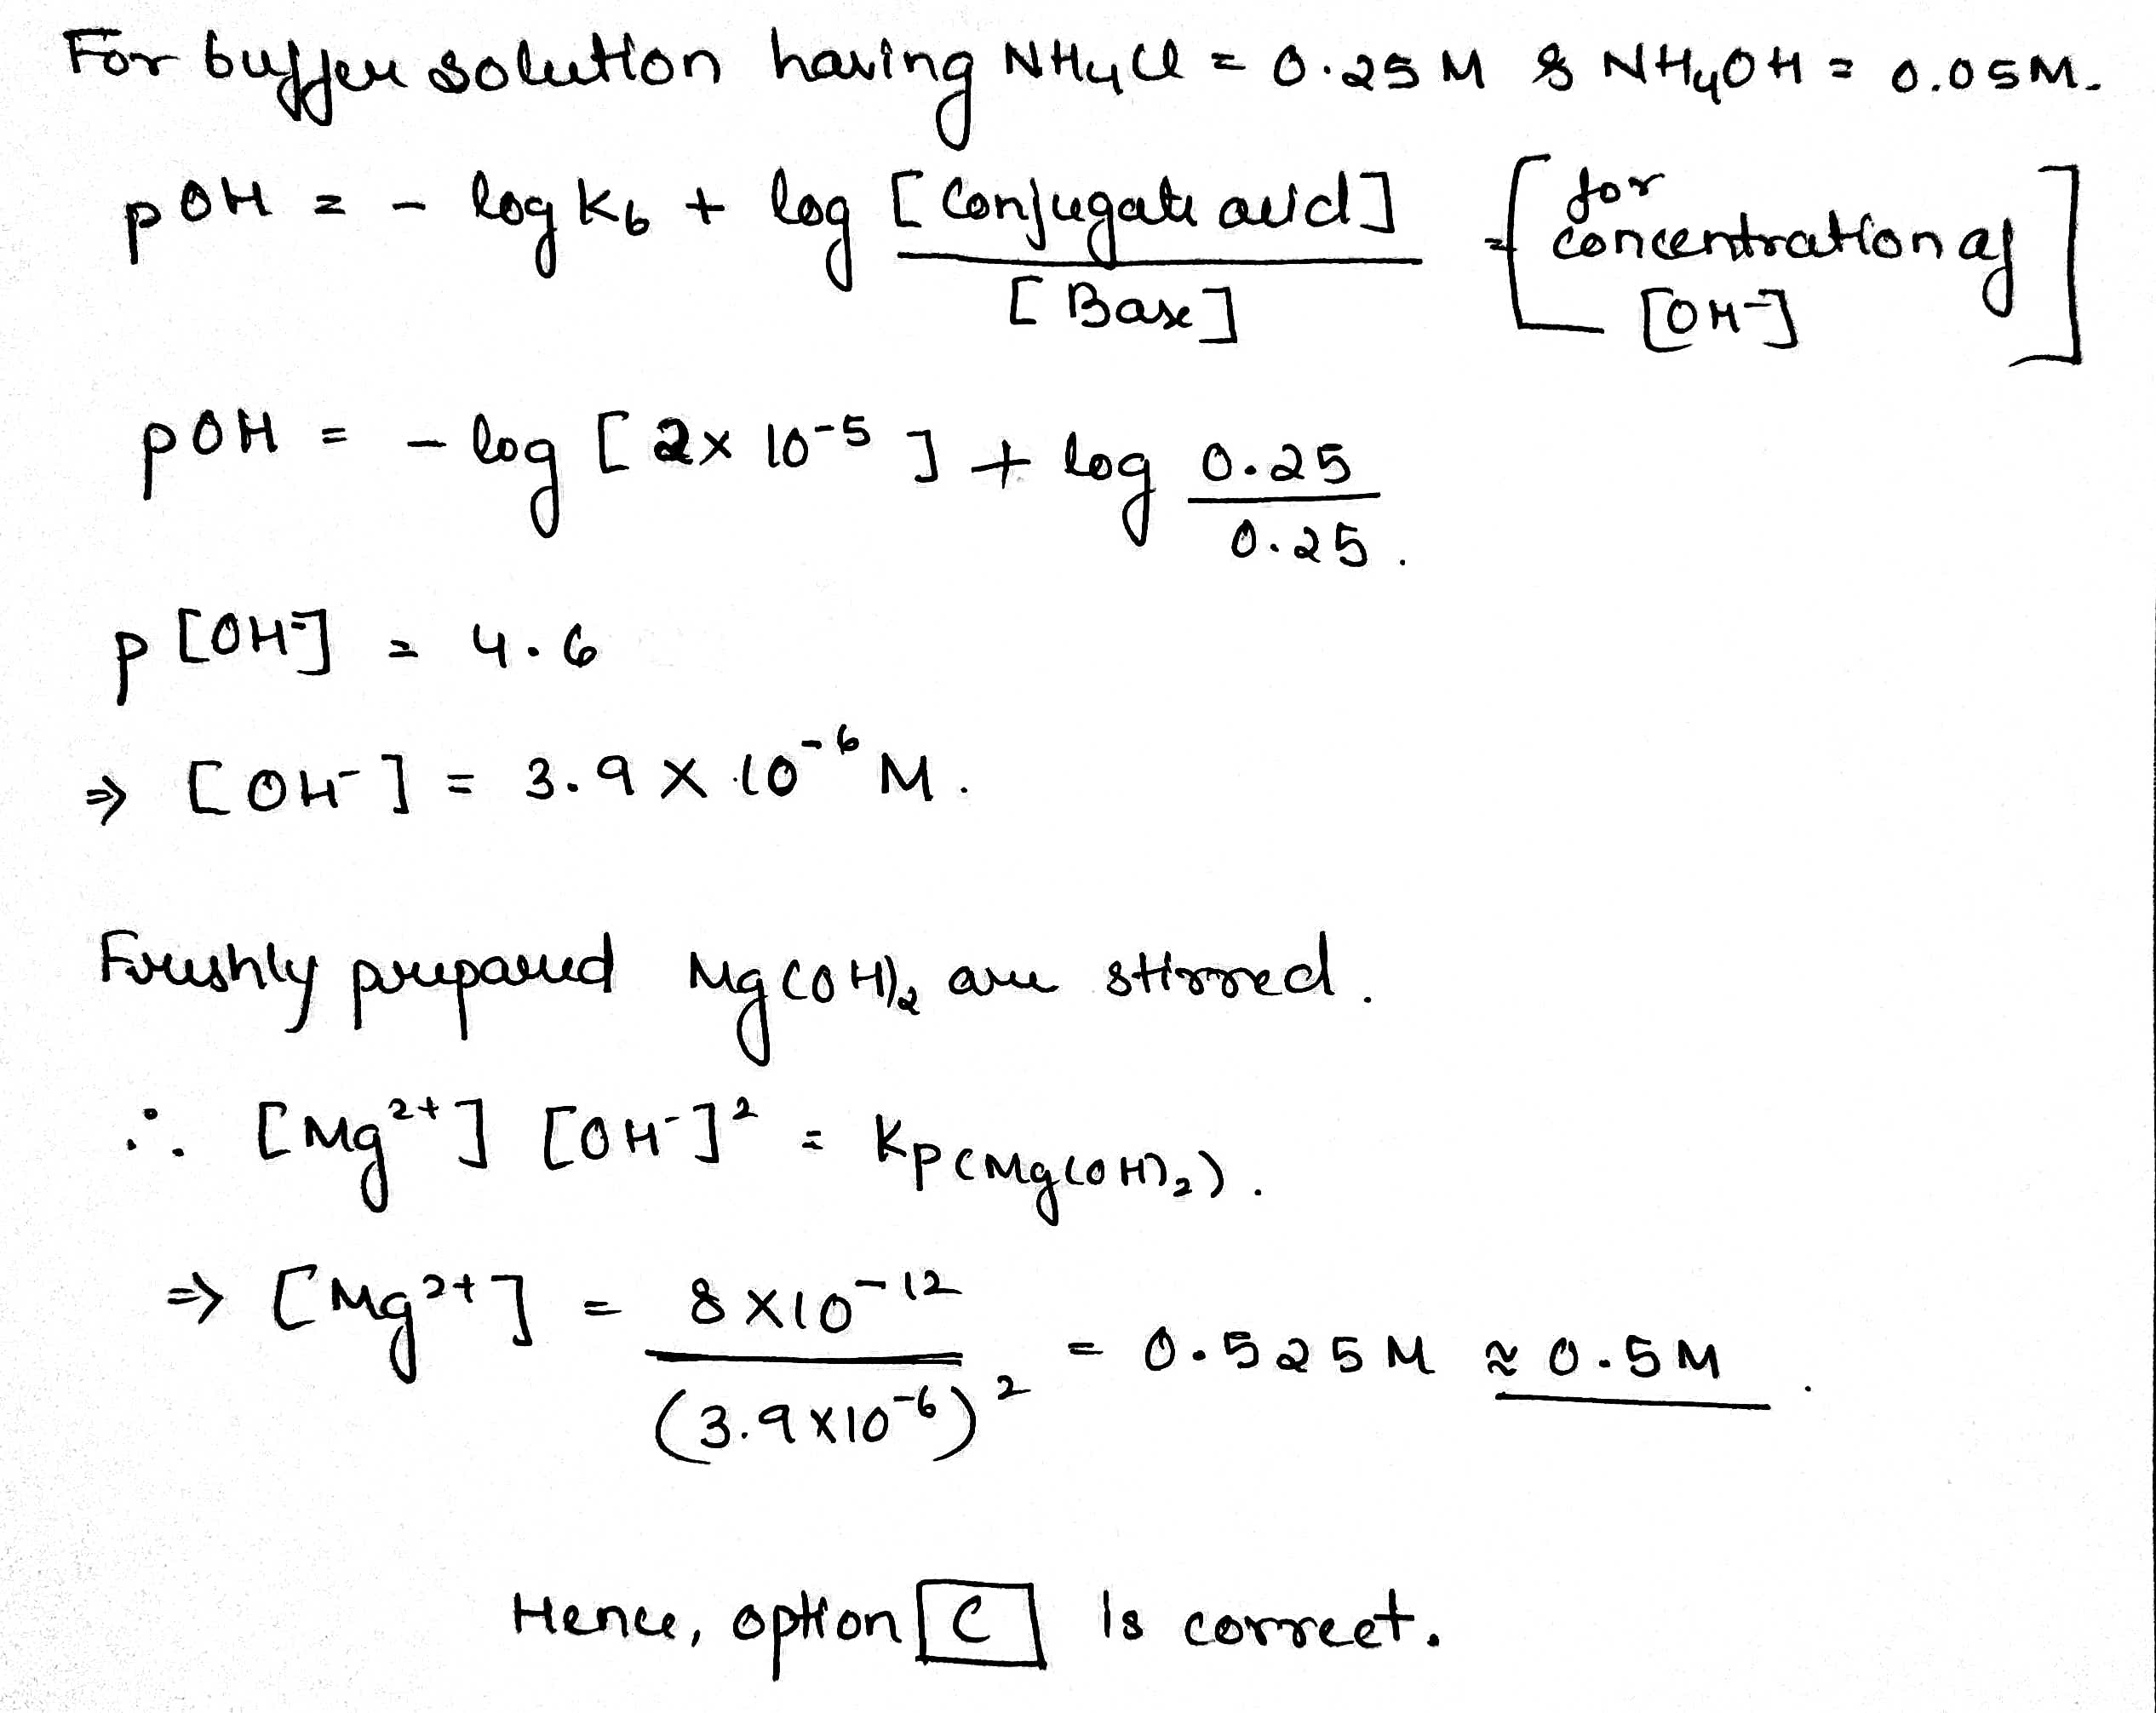 For buffer solution having NH4Cl = 0.25 M & NH4OH = 0.05M.
pOH = - log Kb + log [Conjugate acid] / [Base] = [for concentration of [OH-]]
pOH = - log [2x 10-5] + log 0.25 / 0.25.
p[OH-] = 4.6
⇒ [OH-] = 3.9 × 10-6 M.
Freshly prepared Mg(OH)2 are stirred.
∴ [Mg2+] [OH-]2 = Kp(Mg(OH)2).
⇒ [Mg2+] = 8 ×10-12 / (3.9×10-6)2 = 0.525 M ≈ 0.5 M.
Hence, option C is correct.